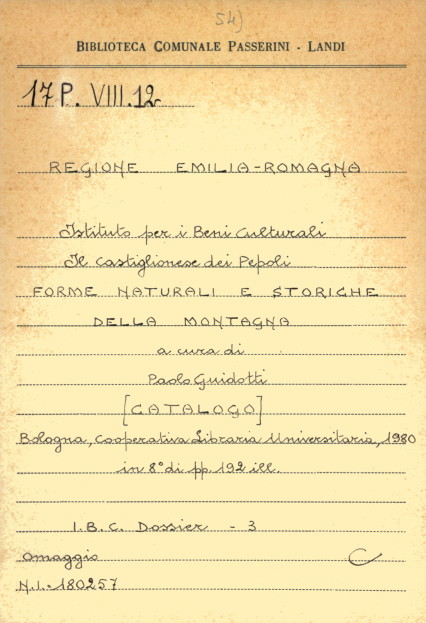 54)
BIBLIOTECA COMUNALE PASSERINI - LANDI
17 P. VIII.12
REGIONE EMILIA-ROMAGNA
Istituto per i Beni Culturali
Il Castiglionese dei Pepoli
FORME NATURALI E STORICHE
DELLA MONTAGNA
a cura di
Paolo Guidotti
[CATALOGO]
Bologna, Cooperativa Libraria Universitaria, 1980
in 8° di pp. 192 ill.
I.B.C. Dossier - 3
Omaggio C
N.I.-180257